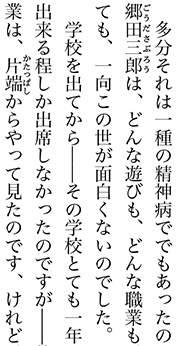 多分それは一種の精神病ででもあったの
郷田三郎は、どんな遊びも、どんな職業も
ても、一向この世が面白くないのでした。
学校を出てから――その学校とても一年
出来る程しか出席しなかったのですが――
業は、片端からやって見たのです、けれど